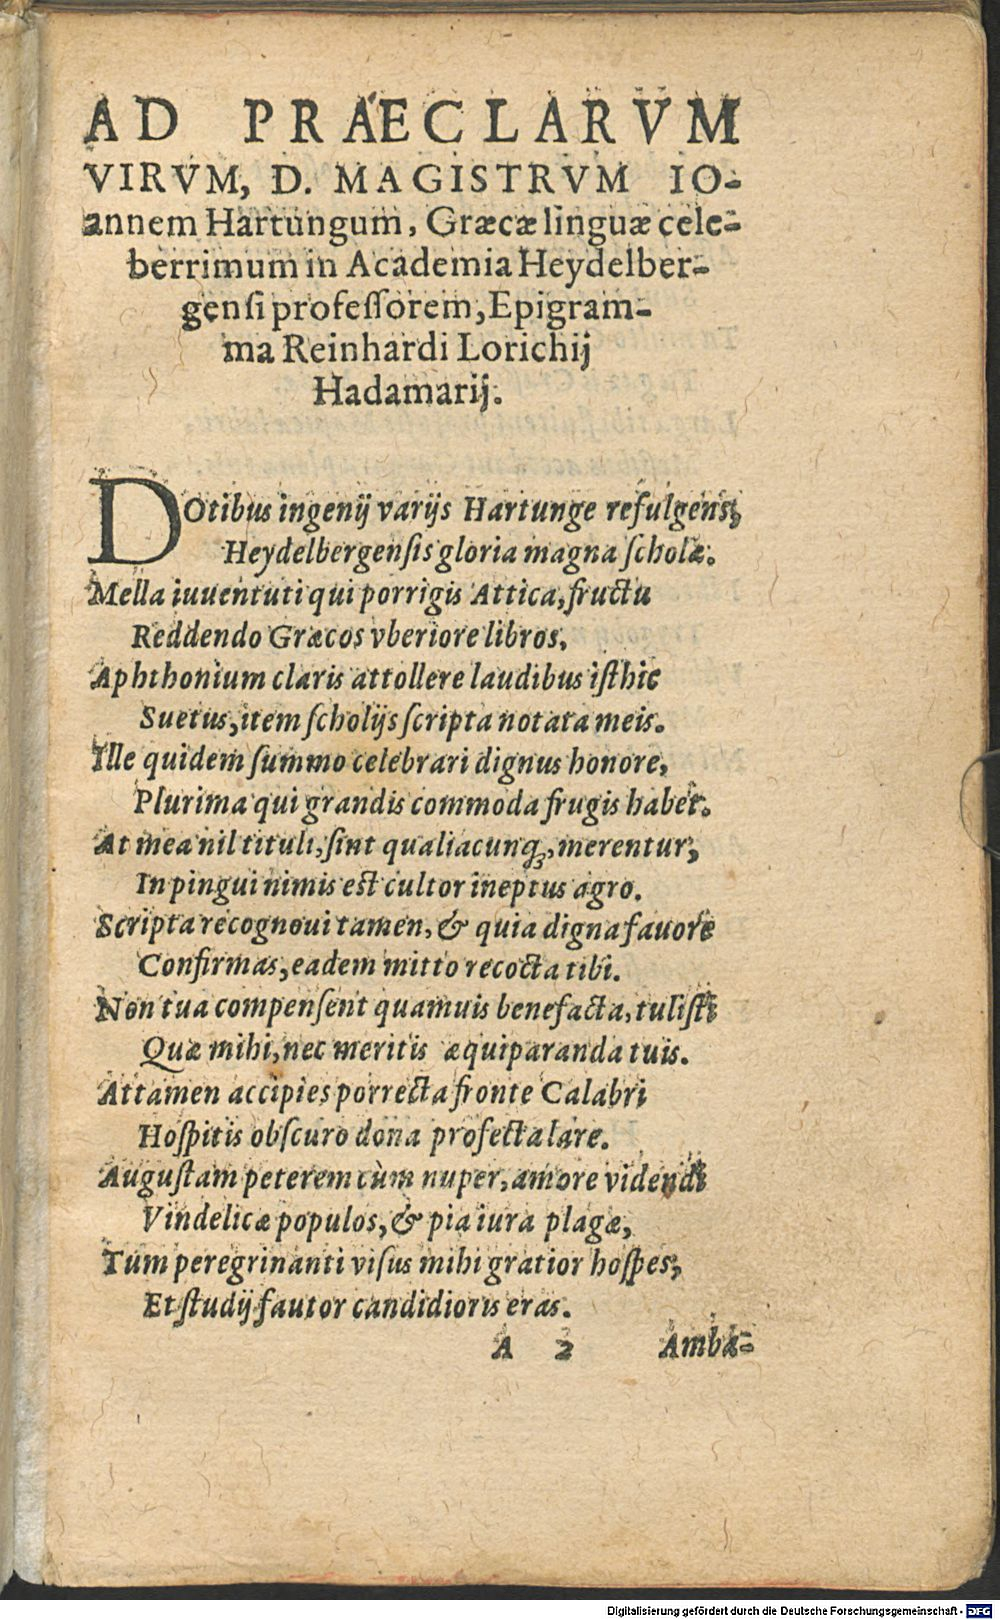 AD PRAECLARVM
VIRVM, D. MAGISTRVM IO-
annem Hartungum, Græcæ linguæ cele-
berrimum in Academia Heydelber-
gensi professorem, Epigram-
ma Reinhardi Lorichij
Hadamarij.
DOtibus ingenij varijs Hartunge refulgens,
Heydelbergensis gloria magna scholæ.
Mella iuuentuti qui porrigis Attica, fructu
Reddendo Græcos vberiore libros,
Aphthonium claris attollere laudibus isthic
Suetus, item scholijs scripta notata meis.
Ille quidem summo celebrari dignus honore,
Plurima qui grandis commoda frugis habet.
At mea nil tituli, sint qualiacunq́₃, merentur,
In pingui nimis est cultor ineptus agro.
Scripta recognoui tamen, & quia digna fauore
Confirmas, eadem mitto recocta tibi.
Non tua compensent quamuis benefacta, tulisti
Quæ mihi, nec meritis æquiparanda tuis.
Attamen accipies porrecta fronte Calabri
Hospitis obscuro dona profecta lare.
Augustam peterem cùm nuper, amore videndi
Vindelicæ populos, & pia iura plagæ,
Tum peregrinanti visus mihi gratior hospes,
Et studij fautor candidioris eras.
A 2 Amba-
Digitalisierung gefördert durch die Deutsche Forschungsgemeinschaft - DFG